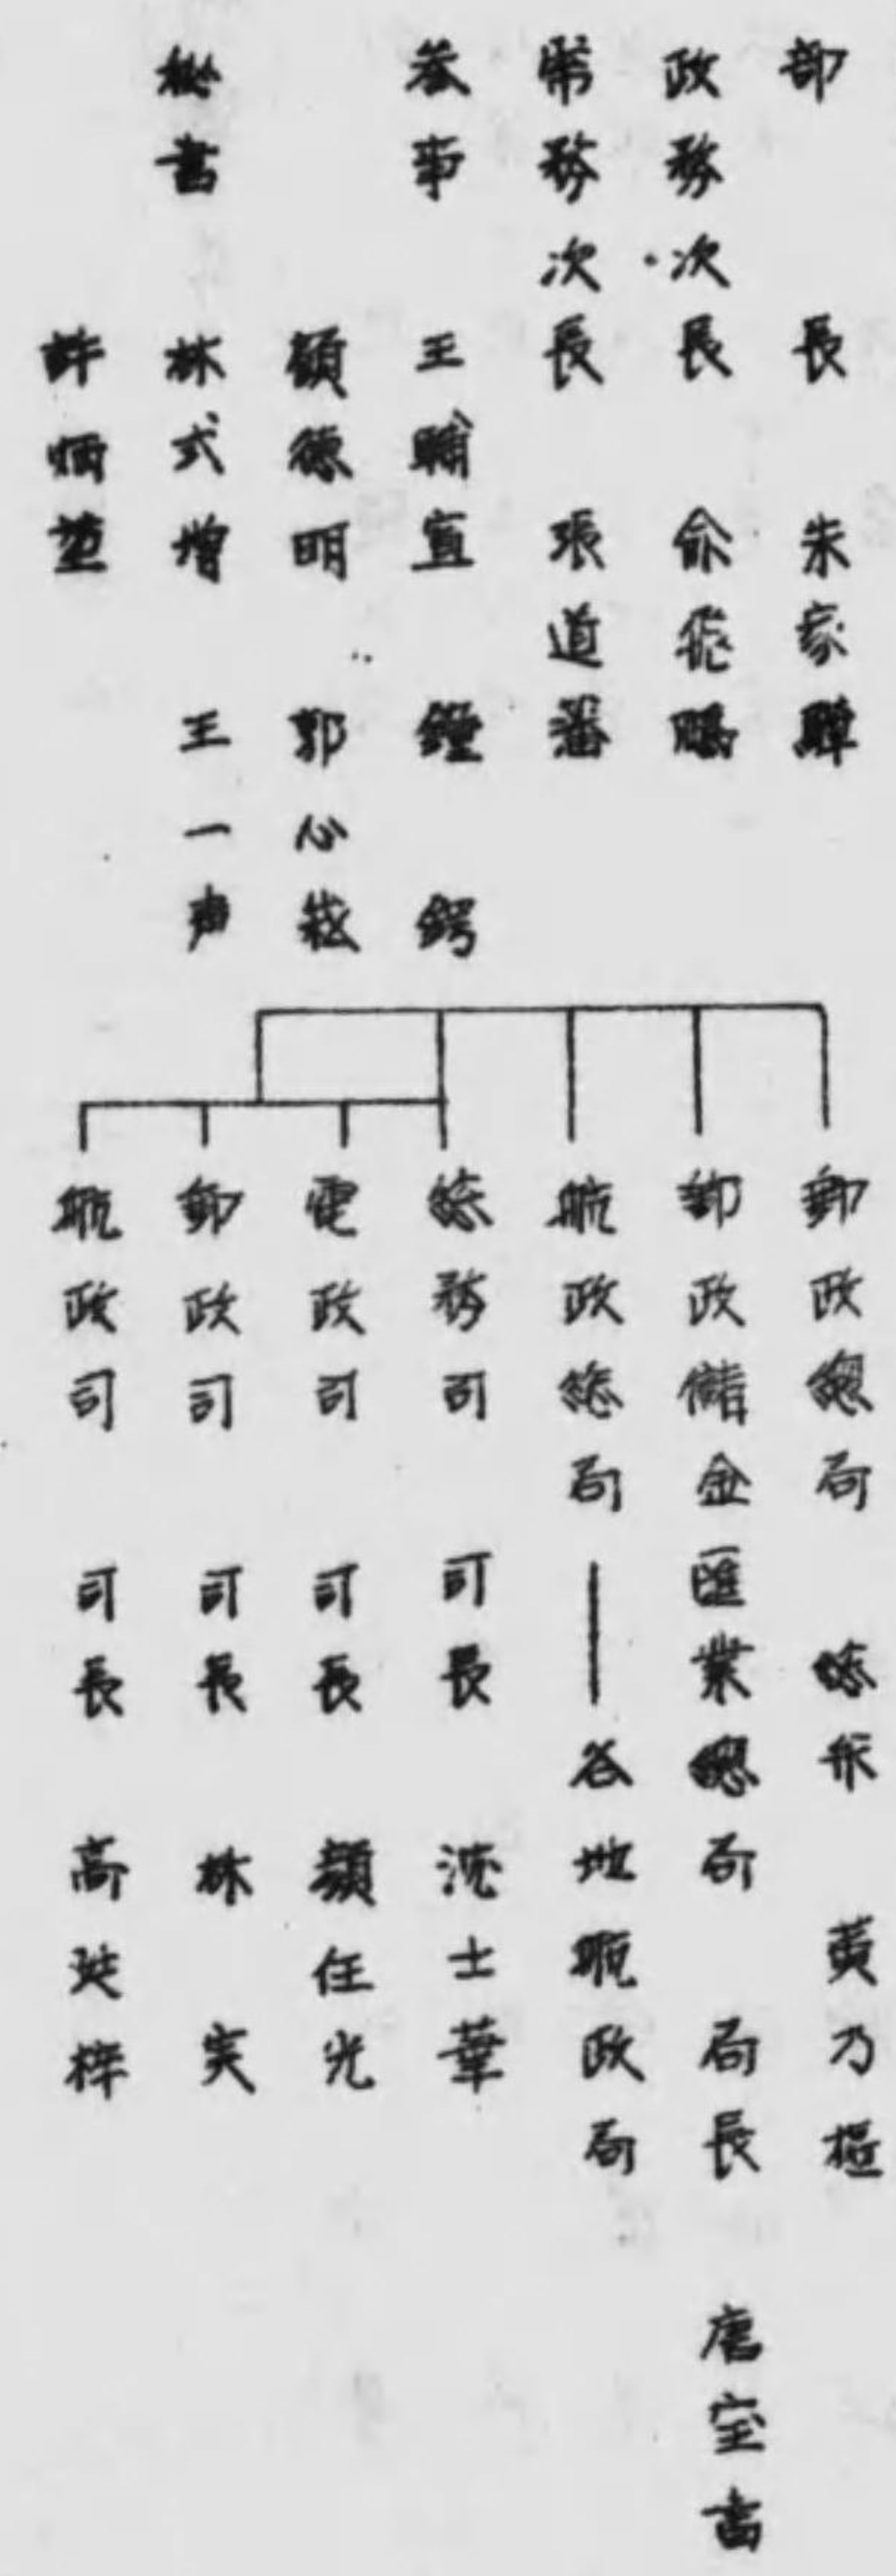 部長 朱家驊
政務次長 俞飛鵬
常務次長 張道藩
参事 王輔宜 鍾鍔
顧德明 郭心崧
秘書 林式增 王一声
許炳堃
郵政總局 總弁 黄乃樞
郵政儲金匯業總局 局長 唐宝書
航政総局 ― 各地航政局
総務司 司長 沈士華
電政司 司長 顔任光
郵政司 司長 林実
航政司 司長 高廷梓